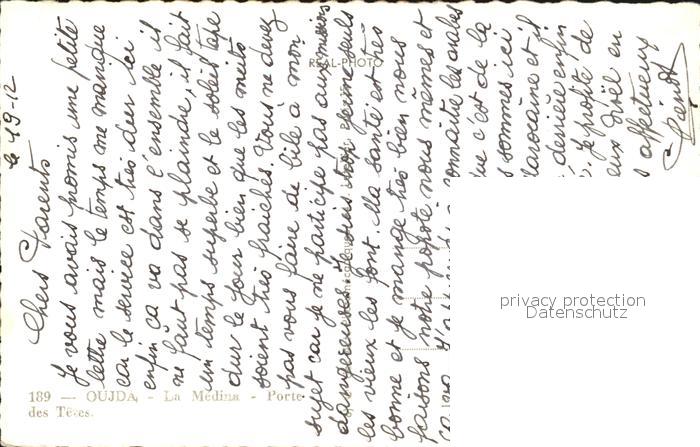 le 19-12
Chers Parents
Je vous avais promis une petite
lettre mais le temps me manque
car le service est très dur ici
enfin ça va dans l'ensemble il
ne faut pas se plaindre, il fait
un temps superbe et le soleil tape
dur le jour bien que les nuits
soient très fraîches. Vous ne devez
pas vous faire de bile à mon
sujet car je ne participe pas aux missions
dangereuses je suis trop jeune seuls
les vieux les font. Ma santé est très
bonne et je mange très bien nous
faisons notre popote nous mêmes et
connaître les arabes
que c'est de la
s sommes ici
Marocaine et il
derrière enfin
je profite de
eux Noël en
s affectueux
Pierrot
REAL-PHOTO
189 — OUJDA - La Médina - Porte
des Têtes.
privacy protection
Datenschutz